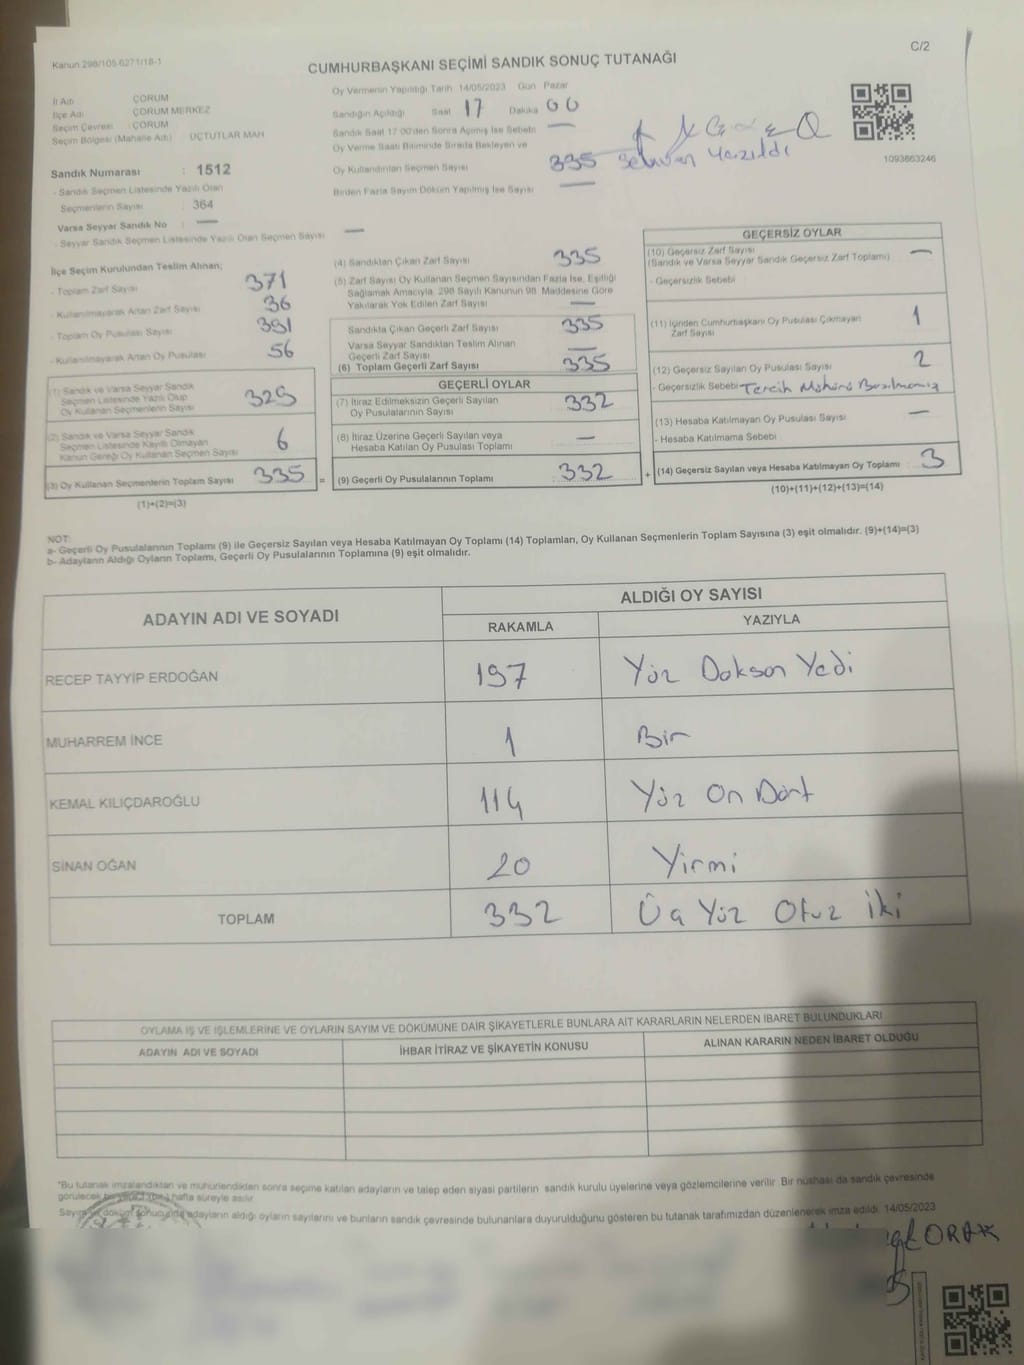 Kanun 298/105 6271/18-1
C/2
CUMHURBAŞKANI SEÇİMİ SANDIK SONUÇ TUTANAĞI
İl Adı : ÇORUM
İlçe Adı : ÇORUM MERKEZ
Seçim Çevresi : ÇORUM
Seçim Bölgesi (Mahalle Adı) : ÜÇTUTLAR MAH
Sandık Numarası : 1512
- Sandık Seçmen Listesinde Yazılı Olan
Seçmenlerin Sayısı : 364
Varsa Seyyar Sandık No : —
- Seyyar Sandık Seçmen Listesinde Yazılı Olan Seçmen Sayısı —
Oy Vermenin Yapıldığı Tarih 14/05/2023 Gün Pazar
Sandığın Açıldığı Saat 17 Dakika 00
Sandık Saat 17 00'den Sonra Açılmış İse Sebebi —
Oy Verme Saati Bitiminde Sırada Bekleyen ve
Oy Kullandırılan Seçmen Sayısı 335 Sehven Yazıldı
Birden Fazla Sayım Döküm Yapılmış İse Sayısı —
1093663246
İlçe Seçim Kurulundan Teslim Alınan;
- Toplam Zarf Sayısı 371
- Kullanılmayarak Artan Zarf Sayısı 36
Toplam Oy Pusulası Sayısı 391
- Kullanılmayarak Artan Oy Pusulası 56
(1) Sandık ve Varsa Seyyar Sandık
Seçmen Listesinde Yazılı Olup
Oy Kullanan Seçmenlerin Sayısı 329
(2) Sandık ve Varsa Seyyar Sandık
Seçmen Listesinde Kayıtlı Olmayan
Kanun Gereği Oy Kullanan Seçmen Sayısı 6
(3) Oy Kullanan Seçmenlerin Toplam Sayısı 335 =
(1)+(2)=(3)
(4) Sandıktan Çıkan Zarf Sayısı 335
(5) Zarf Sayısı Oy Kullanan Seçmen Sayısından Fazla İse, Eşitliği
Sağlamak Amacıyla, 298 Sayılı Kanunun 98 Maddesine Göre
Yakılarak Yok Edilen Zarf Sayısı —
Sandıkta Çıkan Geçerli Zarf Sayısı 335
Varsa Seyyar Sandıktan Teslim Alınan
Geçerli Zarf Sayısı —
(6) Toplam Geçerli Zarf Sayısı 335
GEÇERLİ OYLAR
(7) İtiraz Edilmeksizin Geçerli Sayılan
Oy Pusulalarının Sayısı 332
(8) İtiraz Üzerine Geçerli Sayılan veya
Hesaba Katılan Oy Pusulası Toplamı —
(9) Geçerli Oy Pusulalarının Toplamı 332 +
GEÇERSİZ OYLAR
(10) Geçersiz Zarf Sayısı —
(Sandık ve Varsa Seyyar Sandık Geçersiz Zarf Toplamı)
- Geçersizlik Sebebi
(11) İçinden Cumhurbaşkanı Oy Pusulası Çıkmayan
Zarf Sayısı 1
(12) Geçersiz Sayılan Oy Pusulası Sayısı 2
- Geçersizlik Sebebi Tercih Mührü Basılmamış
(13) Hesaba Katılmayan Oy Pusulası Sayısı —
- Hesaba Katılmama Sebebi
(14) Geçersiz Sayılan veya Hesaba Katılmayan Oy Toplamı : 3
(10)+(11)+(12)+(13)=(14)
NOT:
a- Geçerli Oy Pusulalarının Toplamı (9) ile Geçersiz Sayılan veya Hesaba Katılmayan Oy Toplamı (14) Toplamları, Oy Kullanan Seçmenlerin Toplam Sayısına (3) eşit olmalıdır. (9)+(14)=(3)
b- Adayların Aldığı Oyların Toplamı, Geçerli Oy Pusulalarının Toplamına (9) eşit olmalıdır.
ADAYIN ADI VE SOYADI
ALDIĞI OY SAYISI
RAKAMLA YAZIYLA
RECEP TAYYİP ERDOĞAN 197 Yüz Doksan Yedi
MUHARREM İNCE 1 Bir
KEMAL KILIÇDAROĞLU 114 Yüz On Dört
SİNAN OĞAN 20 Yirmi
TOPLAM 332 Üç Yüz Otuz İki
OYLAMA İŞ VE İŞLEMLERİNE VE OYLARIN SAYIM VE DÖKÜMÜNE DAİR ŞİKAYETLERLE BUNLARA AİT KARARLARIN NELERDEN İBARET BULUNDUKLARI
ADAYIN ADI VE SOYADI İHBAR İTİRAZ VE ŞİKAYETİN KONUSU ALINAN KARARIN NEDEN İBARET OLDUĞU
"Bu tutanak imzalandıktan ve mühürlendikten sonra seçime katılan adayların ve talep eden siyasi partilerin sandık kurulu üyelerine veya gözlemcilerine verilir. Bir nüshası da sandık çevresinde
görülecek bir yere (bir) hafta süreyle asılır
Sayım ve döküm sonucunda adayların aldığı oyların sayılarını ve bunların sandık çevresinde bulunanlara duyurulduğunu gösteren bu tutanak tarafımızdan düzenlenerek imza edildi. 14/05/2023
ORAK